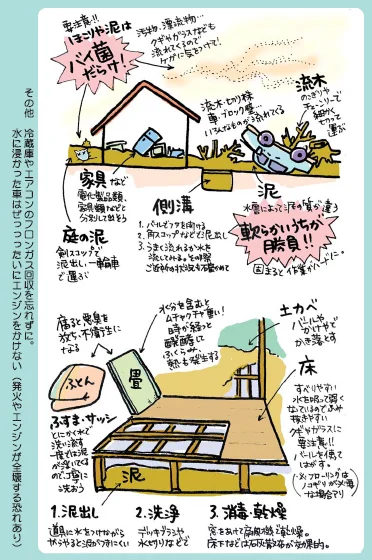 要注意!!
ほこりや泥は
バイ菌
だらけ!
汚物、漂流物…
クギやガラスなども
流れてくるので
ケガに気をつけて!
流木・切り株
車・ブロック塀…
いろんなものが流れてくる
流木
のこぎりや
チェーンソーで
細かく
切って
運ぶ
家具など
電化製品類、
家具類などと
分別して出そう
側溝
1. バールでフタを開ける
2. 角スコップなどで泥出し
3. うまく流れるか水を
流してみる。その際
ご近所の状況も確かめて
泥
水層によって泥の質が違う
軟らかいうちが
勝負!!
固まると作業がハードに。
庭の泥
剣スコップで
泥出し、一輪車
で運ぶ
その他 冷蔵庫やエアコンのフロンガス回収を忘れずに。
水に浸かった車はぜっっったいにエンジンをかけない(発火やエンジンが全壊する恐れあり)
腐ると悪臭を
放ち、不衛生に
なる
ふとん
水分を含むと
ムチャクチャ重い!
時が経つと
醗酵し
ふくらみ、
熱も発生する
畳
土カベ
バールや
かけやで
かき落とす
床
すべりやすい
水を吸って弱く
なっているのでふみ
抜きやすい
クギやガラスに
要注意!!
バールを使って
はがす。
(※フローリングは
ノコギリが必要
な場合アリ)
ふすま・サッシ
とにかくれで
洗い流す
一度では泥
が浮いてくる
ので、丁寧に
洗おう
泥
1. 泥出し
道具に水をつけながら
やらやると泥がつきにくい
2. 洗浄
デッキブラシや
水切りなどで
3. 消毒・乾燥
窓をあけて扇風機で乾燥。
床下などは石灰散布が効果的。